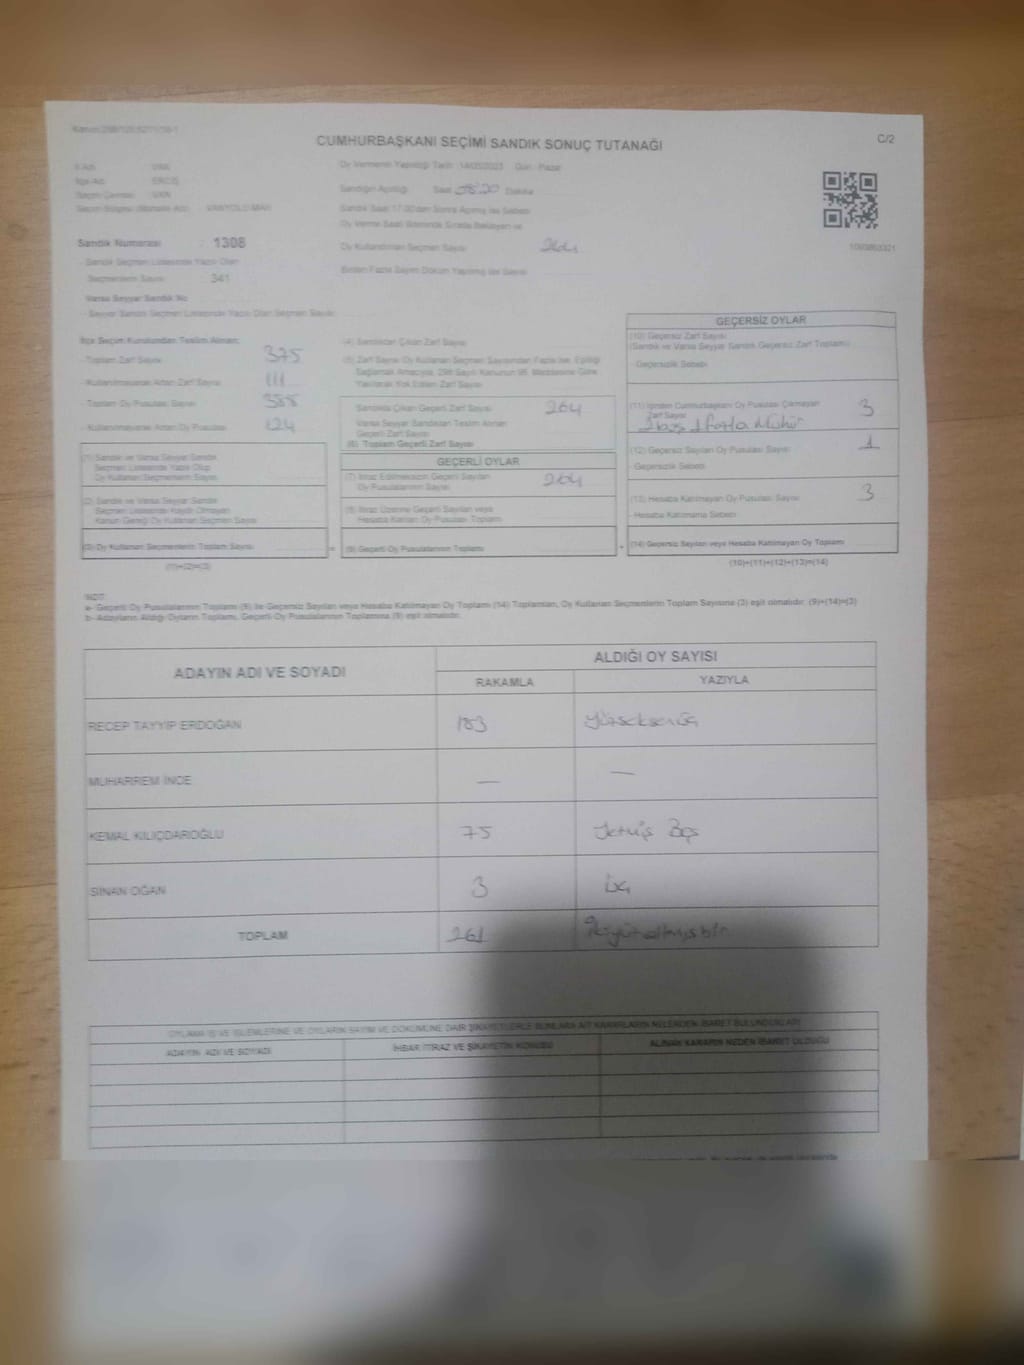 CUMHURBAŞKANI SEÇİMİ SANDIK SONUÇ TUTANAĞI
C/2
İl Adı VAN
İlçe Adı ERCİŞ
Seçim Çevresi VAN
VANYOLU MAH
Oy Vermenin Yapıldığı Tarih : 14/05/2023 Gün : Pazar
Sandığın Açıldığı Saat Dakika
Sandık Saat 17:00'dan Sonra Açılmış ise Sebebi
Sandık Numarası : 1308
Oy Kullandırılan Seçmen Sayısı
Sandık Seçmen Listesinde Yazılı Olan
Seçmenlerin Sayısı 341
Birden Fazla Sayım Döküm Yapılmış ise Sayısı
Varsa Seyyar Sandık No
- Seyyar Sandık Seçmen Listesinde Yazılı Olan Seçmen Sayısı
İlçe Seçim Kurulundan Teslim Alınan;
- Toplam Zarf Sayısı 375
- Kullanılmayarak Artan Zarf Sayısı 111
- Toplam Oy Pusulası Sayısı 388
- Kullanılmayarak Artan Oy Pusulası 124
(1) Sandık ve Varsa Seyyar Sandık
Seçmen Listesinde Yazılı Olup
Oy Kullanan Seçmenlerin Sayısı
(2) Sandık ve Varsa Seyyar Sandık
Seçmen Listesinde Kayıtlı Olmayan
Kanun Gereği Oy Kullanan Seçmen Sayısı
(3) Oy Kullanan Seçmenlerin Toplam Sayısı
(1)+(2)=(3)
(4) Sandıktan Çıkan Zarf Sayısı
(5) Zarf Sayısı Oy Kullanan Seçmen Sayısından Fazla ise, Eşitliği
Sağlamak Amacıyla, 298 Sayılı Kanunun 98. Maddesine Göre
Yakılarak Yok Edilen Zarf Sayısı
Sandıkta Çıkan Geçerli Zarf Sayısı 264
Varsa Seyyar Sandıktan Teslim Alınan
Geçerli Zarf Sayısı
(6) Toplam Geçerli Zarf Sayısı
GEÇERLİ OYLAR
(7) İtiraz Edilmeksizin Geçerli Sayılan
Oy Pusulalarının Sayısı 264
(8) İtiraz Üzerine Geçerli Sayılan veya
Hesaba Katılan Oy Pusulası Toplamı
(9) Geçerli Oy Pusulalarının Toplamı
GEÇERSİZ OYLAR
(10) Geçersiz Zarf Sayısı
(Sandık ve Varsa Seyyar Sandık Geçersiz Zarf Toplamı)
- Geçersizlik Sebebi
(11) İçinden Cumhurbaşkanı Oy Pusulası Çıkmayan
Zarf Sayısı 3
2 boş 1 fazla Mühür
(12) Geçersiz Sayılan Oy Pusulası Sayısı 1
- Geçersizlik Sebebi
(13) Hesaba Katılmayan Oy Pusulası Sayısı 3
- Hesaba Katılmama Sebebi
(14) Geçersiz Sayılan veya Hesaba Katılmayan Oy Toplamı
(10)+(11)+(12)+(13)=(14)
NOT:
a- Geçerli Oy Pusulalarının Toplamı (9) ile Geçersiz Sayılan veya Hesaba Katılmayan Oy Toplamı (14) Toplamları, Oy Kullanan Seçmenlerin Toplam Sayısına (3) eşit olmalıdır. (9)+(14)=(3)
b- Adayların Aldığı Oyların Toplamı, Geçerli Oy Pusulalarının Toplamına (9) eşit olmalıdır.
ADAYIN ADI VE SOYADI
ALDIĞI OY SAYISI
RAKAMLA YAZIYLA
RECEP TAYYİP ERDOĞAN 183 Yüzseksenüç
MUHARREM İNCE — —
KEMAL KILIÇDAROĞLU 75 Yetmiş Beş
SİNAN OĞAN 3 üç
TOPLAM 261 ikiyüzaltmışbir
OYLAMA İŞ VE İŞLEMLERİNE VE OYLARIN SAYIM VE DÖKÜMÜNE DAİR ŞİKAYETLERLE BUNLARA AİT KARARLARIN NELERDEN İBARET BULUNDUKLARI
ADAYIN ADI VE SOYADI İHBAR İTİRAZ VE ŞİKAYETİN KONUSU ALINAN KARARIN NEDEN İBARET OLDUĞU